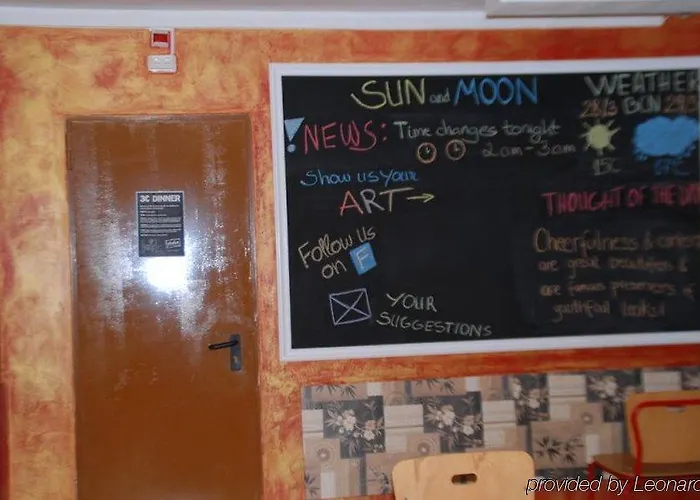 SUN and MOON
NEWS: Time changes tonight
2am-3am
Show us your
ART →
Follow us
on F
YOUR
SUGGESTIONS
WEATHER
28/3 BCN 29/3
15C
THOUGHT OF THE DA
Cheerfulness &
are great beautifiers &
are famous preservers of
youthful looks!
3€ DINNER
provided by Leonar